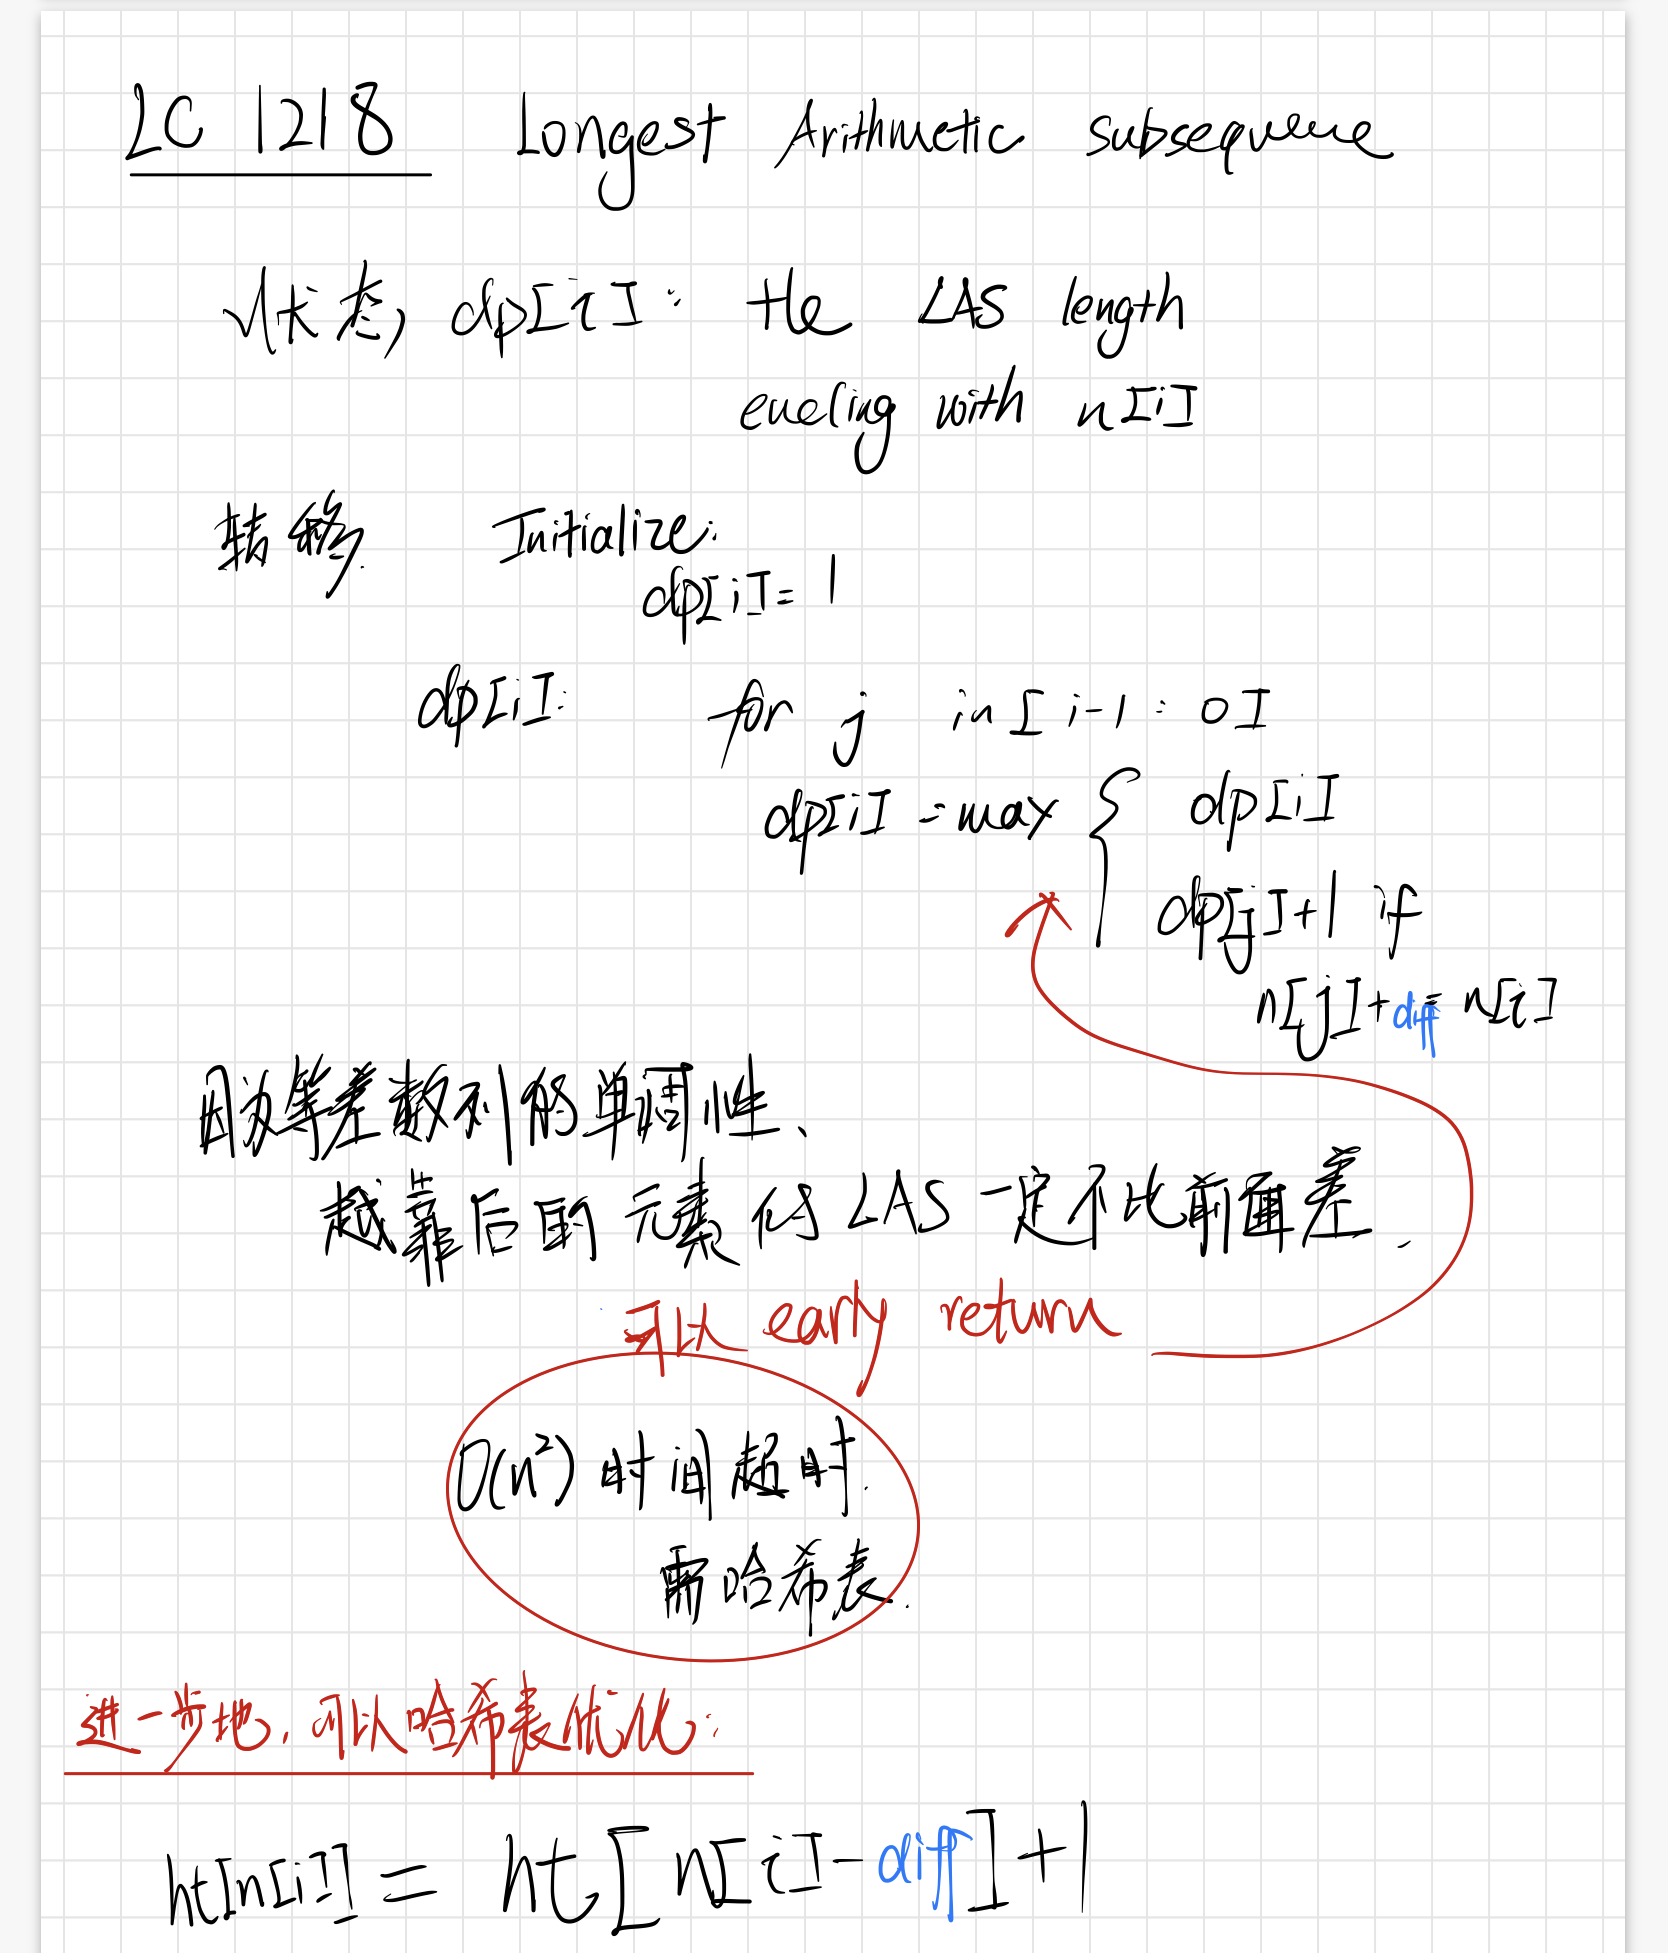 LC 1218 Longest Arithmetic subsequence
状态, dp[i]: the LAS length
ending with n[i]
转移. Initialize:
dp[i]= 1
dp[i]: for j in [i-1:0]
dp[i] = max { dp[i]
dp[j]+1 if
n[j]+diff = n[i]
因为等差数列的单调性、
越靠后的元素的LAS一定不比前面差.
可以 early return
O(n²) 时间超时.
需哈希表.
进一步地,可以哈希表优化:
ht[n[i]] = ht[n[i]-diff]+1